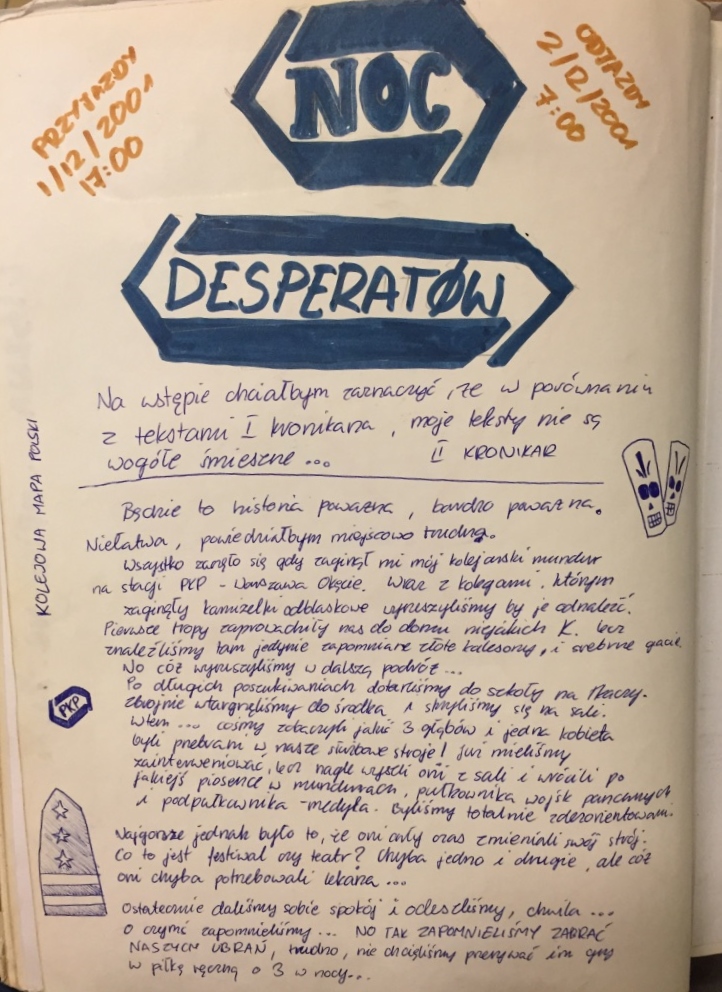 PRZYJAZDY
1/12/2001
17:00
NOC
ODJAZDY
2/12/2001
7:00
DESPERATØW
Na wstępie chciałbym zaznaczyć, że w porównaniu
z tekstami I kronikarza, moje teksty nie są
wogóle śmieszne ... II KRONIKAR
KOLEJOWA MAPA POLSKI
Będzie to historia poważna, bardzo poważna.
Niełatwa, powiedziałbym miejscowo trudna.
Wszystko zaczęło się gdy zaginął mi mój kolejarski mundur
na stacji PKP - Warszawa Okęcie. Wraz z kolegami, którym
zaginęły kamizelki odblaskowe wyruszyliśmy by je odnaleźć.
Pierwsze tropy zaprowadziły nas do domu niejakich K. lecz
znaleźliśmy tam jedynie zapomniane złote kalesony, i srebrne gacie.
No cóż wyruszyliśmy w dalszą podróż ...
Po długich poszukiwaniach dotarliśmy do szkoły na Tkaczy.
Zbrojnie wtargnęliśmy do środka i skryliśmy się na sali.
Wtem ... cośmy zobaczyli jakiś 3 głąbów i jedna kobieta
byli przebrani w nasze służbowe stroje! Już mieliśmy
zainterweniować, lecz nagle wyszli oni z sali i wrócili po
jakiejś piosence w mundurach, pułkownika wojsk pancernych
i podpułkownika - medyka. Byliśmy totalnie zdezorientowani.
PKP
Najgorsze jednak było to, że oni cały czas zmieniali swój strój.
Co to jest festiwal czy teatr? Chyba jedno i drugie, ale cóż
oni chyba potrzebowali lekarza ...
Ostatecznie daliśmy sobie spokój i odeszliśmy, chwila ...
o czymś zapomnieliśmy ... NO TAK ZAPOMNIELIŚMY ZABRAĆ
NASZYCH UBRAŃ, trudno, nie chcieliśmy przerywać im gry
w piłkę ręczną o 3 w nocy...